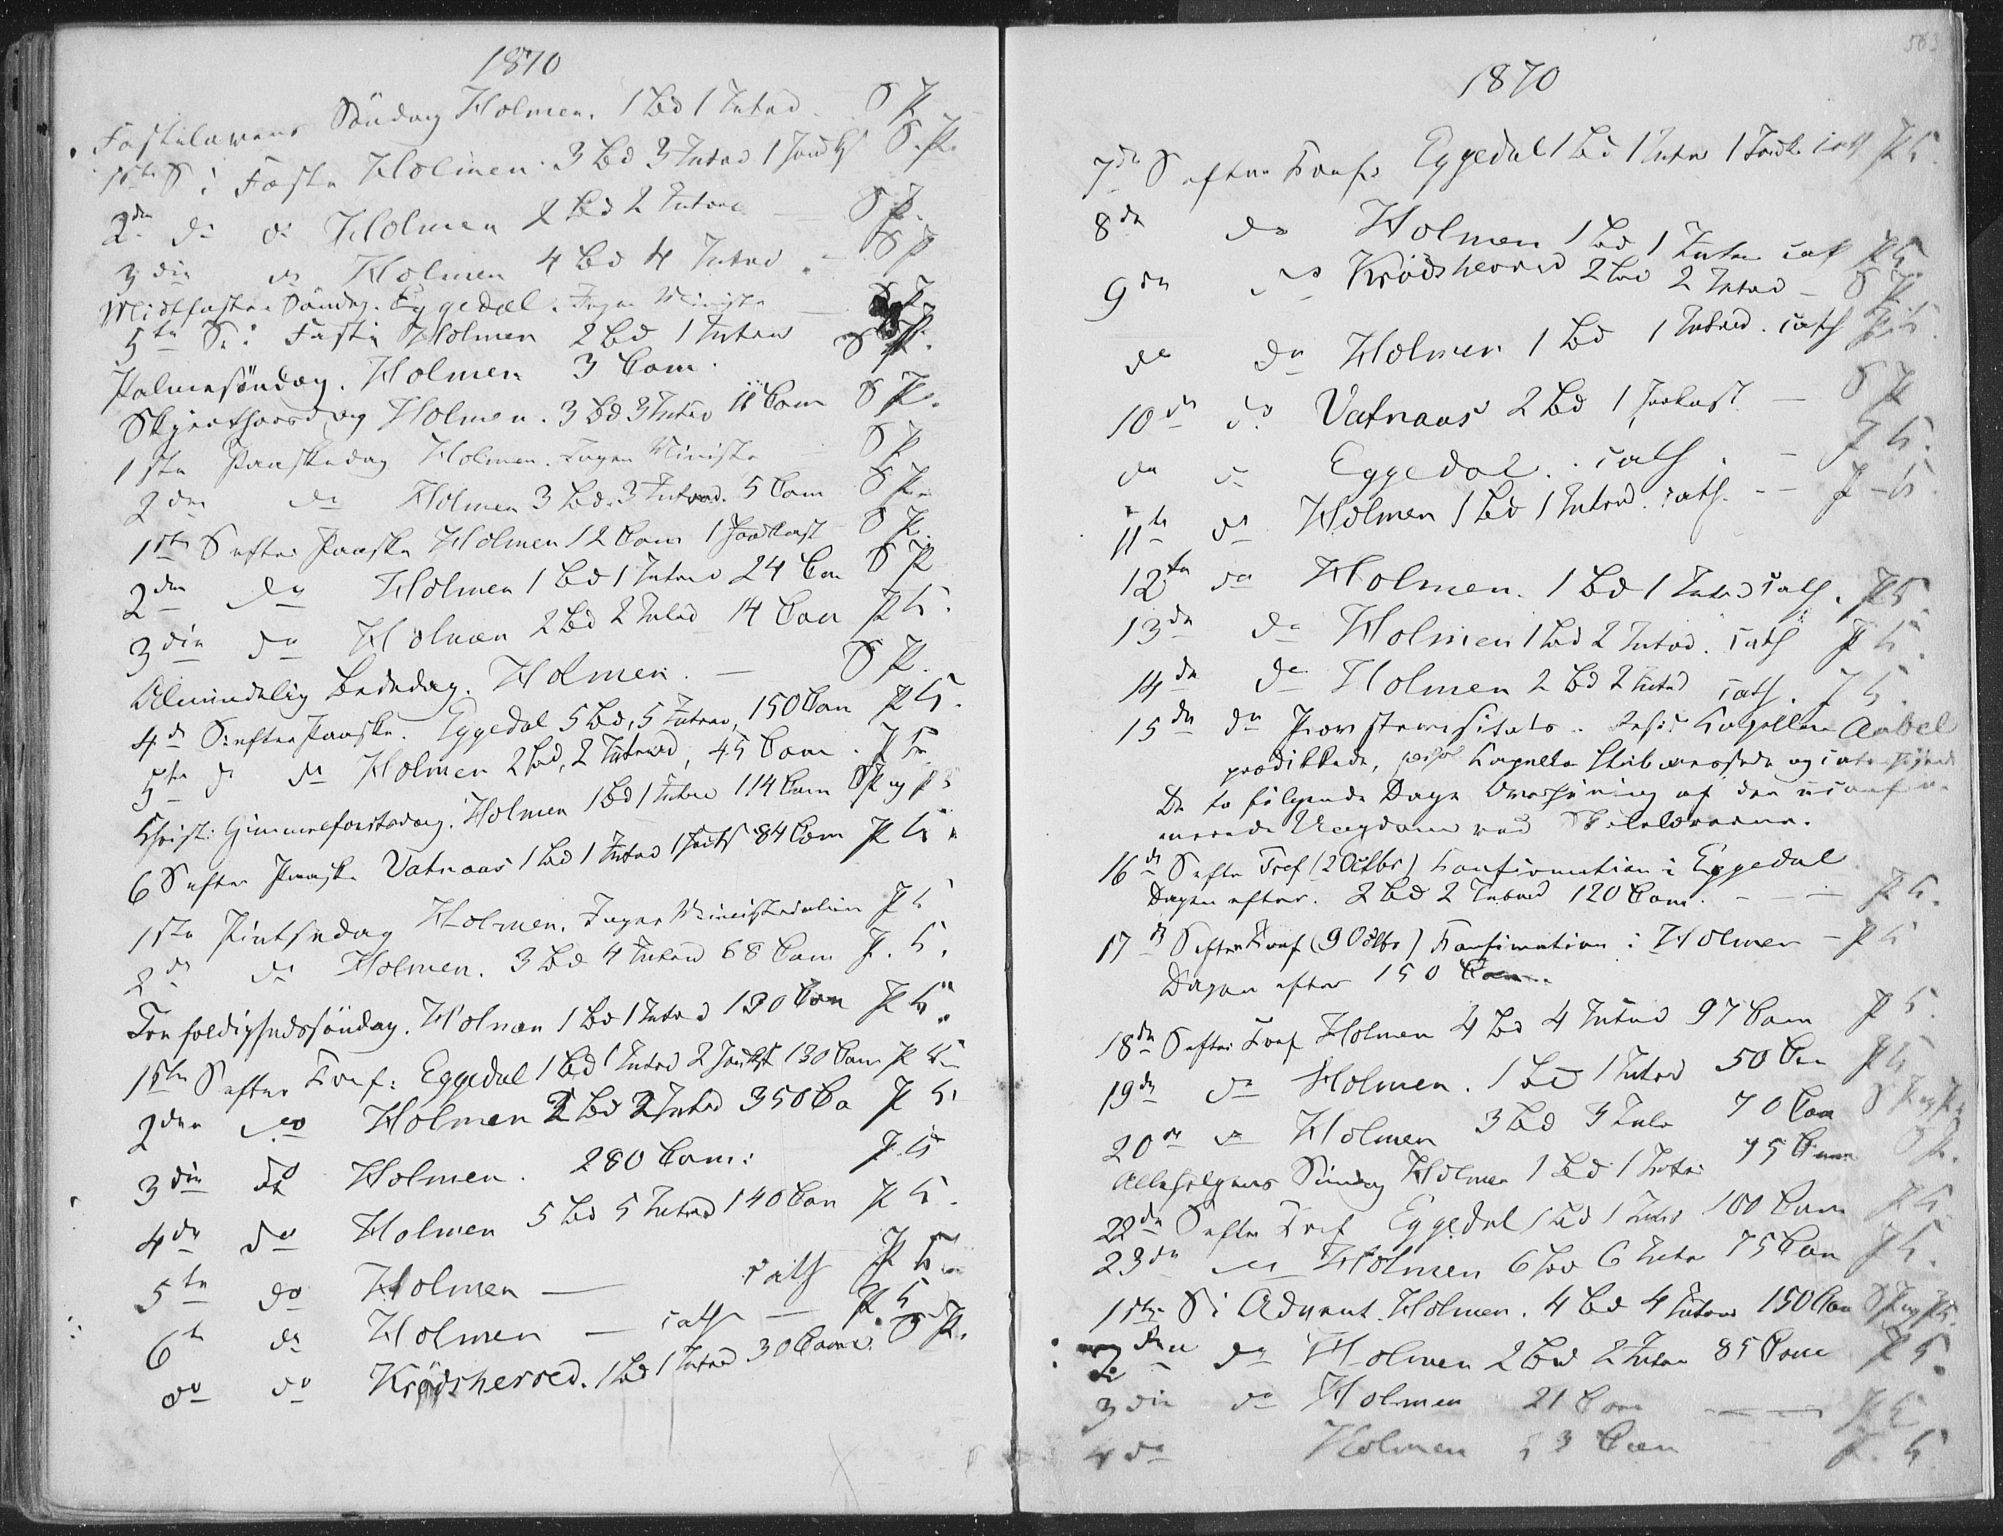 1870
Fastelavens Söndag Holmen. 1 Bd 1 Introd. S P.
1ste S i Faste Holmen. 3 Bd 3 Introd 1 Jordk S. P.
2den do do Holmen 2 Bd 2 Introd — S P.
3die do Holmen 4 Bd 4 Introd. – S P
Midtfaste Söndag. Eggedal. Ingen Ministr — S P
5te S. i Faste Holmen 2 Bd 1 Introd S P.
Palmesöndag. Holmen 3 Com. S P.
Skjærthorsdag Holmen. 3 Bd 3 Introd 11 Com S P.
1ste Paaskedag Holmen. Ingen Ministr S P.
2den do Holmen 3 Bd. 3 Introd. 5 Com S P.
1ste S efter Paaske Holmen 12 Com 1 Jordkast S P.
2den do Holmen 1 Bd 1 Introd 24 Com S P
3die do Holmen 2 Bd 2 Introd 14 Com P K.
Almindelig Bededag. Holmen. — S P.
4de S. efter Paaske. Eggedal 5 Bd, 5 Introd, 150 Com P K.
5te S do Holmen 2 Bd, 2 Introd, 45 Com. P K
Christi Himmelfartsdag. Holmen 1 Bd 1 Introd 114 Com SP og P K
6 S efter Paaske Vatnaas 1 Bd 1 Introd 1 Jordk 84 Com P K.
1ste Pintsedag Holmen. Ingen Ministerialia P K
2d do Holmen. 3 Bd 4 Introd 68 Com P. K.
Trefoldighedssöndag. Holmen 1 Bd 1 Introd 130 Com P K.
1ste S efter Tref: Eggedal 1 Bd 1 Introd 2 Jordkst 130 Com P K
2den do Holmen 2 Bd 2 Introd 350 Co P K.
3die do Holmen. 280 Com: P. K
4de do Holmen 5 Bd 5 Introd 140 Com P K.
5te do Holmen — cath P K
6te do Holmen — cath — P. K
do do Krödsherred. 1 Bd 1 Introd 30 Com. S P.
1870
7de S efter Tref: Eggedal 1 Bd 1 Introd 1 Jordk cath P K.
8de do Holmen 1 Bd 1 Introd cath P K.
9de do Krödsherred 2 Bd 2 Introd – S P.
do do Holmen 1 Bd 1 Introd. cath P K
10de do Vatnaas 2 Bd 1 Jordkast. — S P
do do Eggedal. cath. – P K.
11te do Holmen 1 Bd 1 Introd. cath. – – P K.
12te do Holmen. 1 Bd 1 Introd cath. P K.
13de do Holmen 1 Bd 2 Introd. cath P K.
14de do Holmen 2 Bd 2 Introd cath. P K.
15de do Provstevisitats. Kapellan Aabel
prædikede, Kapellan
De to fölgende Dage Overhöring af den uconfir-
merede Ungdom ved Skolelærerne.
16de S efter Tref (2 Octbr) Konfirmation i Eggedal
Dagen efter. 2 Bd 2 Introd 120 Com. – – – P K.
17de S efter Tref (9 Octbr) Konfirmation i Holmen – P K
Dagen efter 150 Com.
18de S efter Tref Holmen 4 Bd 4 Introd 97 Com P K.
19de do Holmen. 1 Bd 1 Introd 50 Com P K
20de do Holmen 3 Bd 3 Introd 70 Com S P og P K
Allehelgens Söndag Holmen 1 Bd 1 Introd 75 Com S P.
22de S efter Tref Eggedal 1 Bd 1 Introd 100 Com P K.
23de do Holmen 6 Bd 6 Introd 75 Com P K.
1ste S i Advent. Holmen. 4 Bd 4 Introd 150 Com S P og P K.
2den do Holmen 2 Bd 2 Introd 85 Com P K.
3die do Holmen 21 Com — — P K
4de Holmen 53 Com P. K.